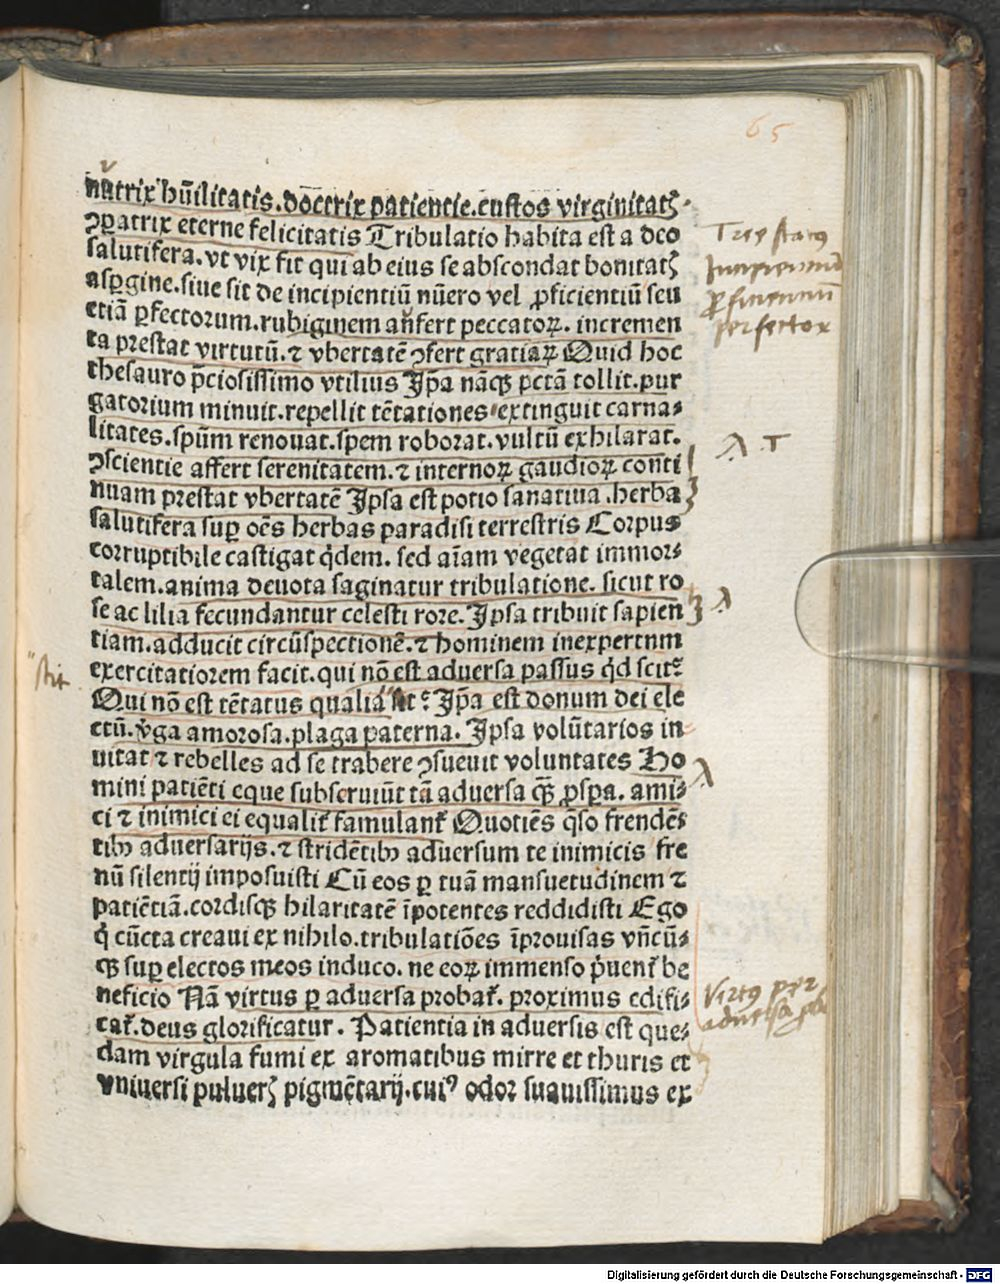 65
nutrix hūilitatis.doctrix patientie.custos virginitatꝭ.
ꝯpatrix eterne felicitatis Tribulatio habita est a deo
salutifera.vt vix fit qui ab eius se abscondat bonitatꝭ
aspgine.siue sit de incipientiū nūero vel ꝓficientiū seu
etiā ꝑfectorum.rubiginem aufert peccatoꝝ. incremen
ta prestat virtutū.⁊ vbertatē ꝯfert gratiaꝝ Quid hoc
thesauro p̄ciosissimo vtilius Ip̄a nāqꝫ pctā tollit.pur
gatorium minuit.repellit tētationes extinguit carna⸗
litates.spūm renouat.spem roborat.vultū exhilarat.
ꝯscientie affert serenitatem.⁊ internoꝝ gaudioꝝ conti
nuam prestat vbertatē Ipsa est potio sanatiua.herba
salutifera suꝑ oēs herbas paradisi terrestris Corpus
corruptibile castigat q̇dem. sed aīam vegetat immor⸗
talem.anima deuota saginatur tribulatione. sicut ro
se ac lilia fecundantur celesti rore. Ipsa tribuit sapien
tiam.adducit circūspectionē.⁊ hominem inexpertum
exercitatiorem facit.qui nō est aduersa passus qd scit?
Qui nō est tētatus qualia Ip̄a est donum dei ele
ctū.v̓ga amorosa.plaga paterna. Ipsa volūtarios in⸗
uitat ⁊ rebelles ad se trahere ꝯsueuit voluntates Ho
mini patiēti eque subseruiūt tā aduersa qꝫ ꝓspa. ami⸗
ci ⁊ inimici ei equalit̉ famulant̉ Quotiēs q̄so frendē⸗
tibꝰ aduersarijs.⁊ stridētibꝰ aduersum te inimicis fre
nū silentij imposuisti Cū eos ꝑ tuā mansuetudinem ⁊
patiētiā.cordisqꝫ hilaritatē īpotentes reddidisti Ego
q̇ cūcta creaui ex nihilo.tribulatiōes īprouisas vn̄cū⸗
qꝫ suꝑ electos meos induco. ne eoꝝ immenso p̓uent̉ be
neficio Nā virtus ꝑ aduersa probat̉. proximus edifi⸗
cat̉.deus glorificatur. Patientia in aduersis est que⸗
dam virgula fumi ex aromatibus mirre et thuris et
vniuersi puluerꝭ pigmētarij.cuiꝰ odor suauissimus ex
Tres status
Incipientium
ꝓficientium
perfectoꝝ
Virtus per
aduersa
Digitalisierung gefördert durch die Deutsche Forschungsgemeinschaft - DFG